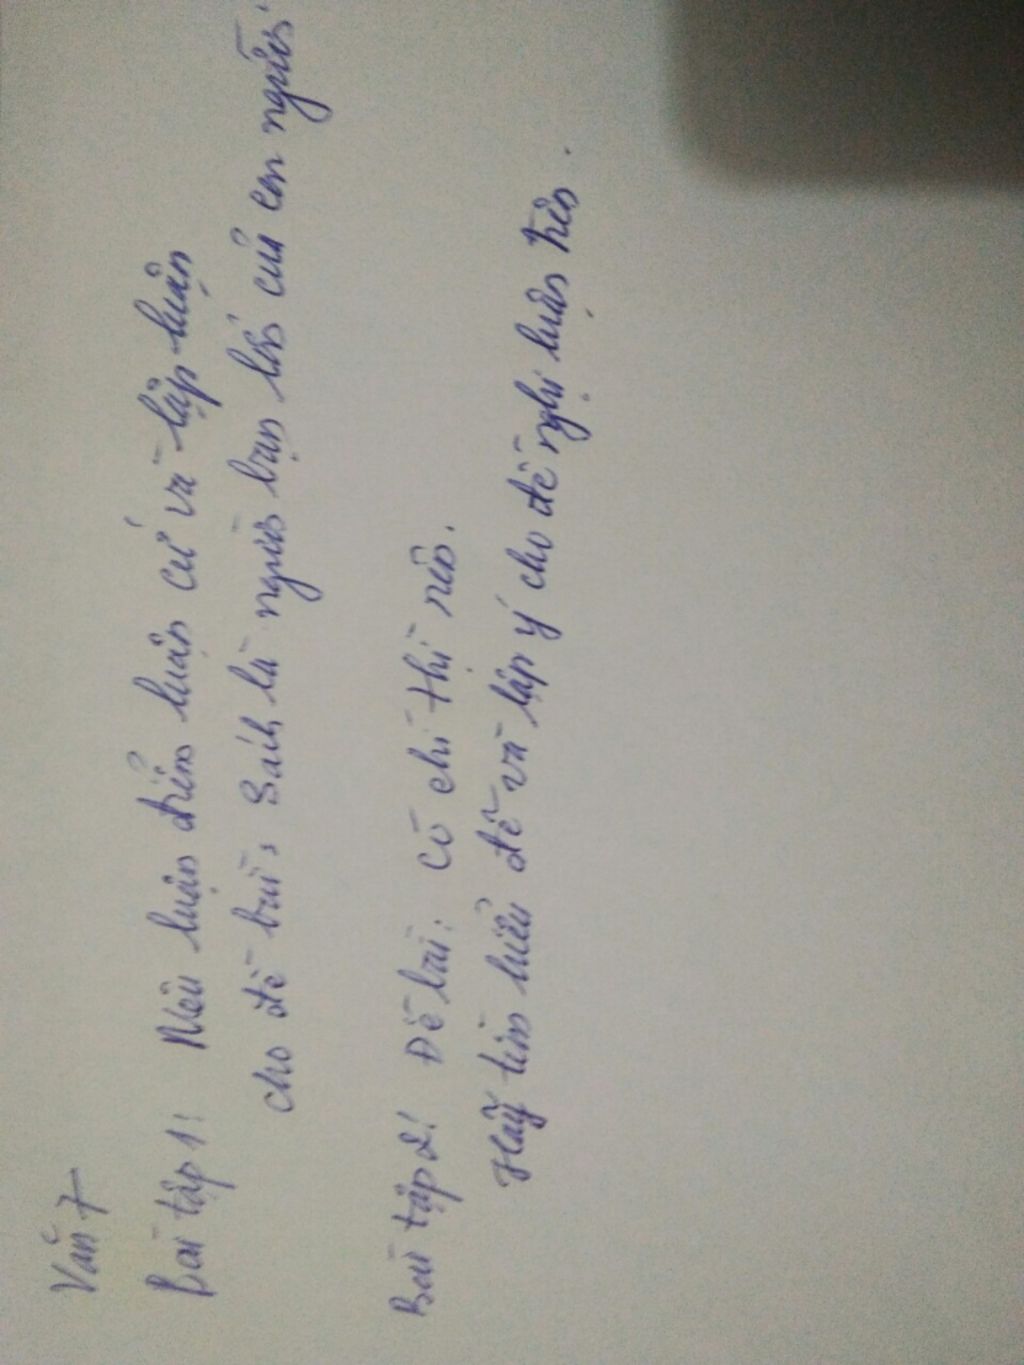 Văn 7
Bài tập 1: Nêu luận điểm luận cứ và lập luận
cho đề bài, Sách là người bạn lớn của con người
Bài tập 2: Đề bài: Có chí thì nên.
Hãy tìm hiểu đề và lập ý cho đề nghị luận trên.